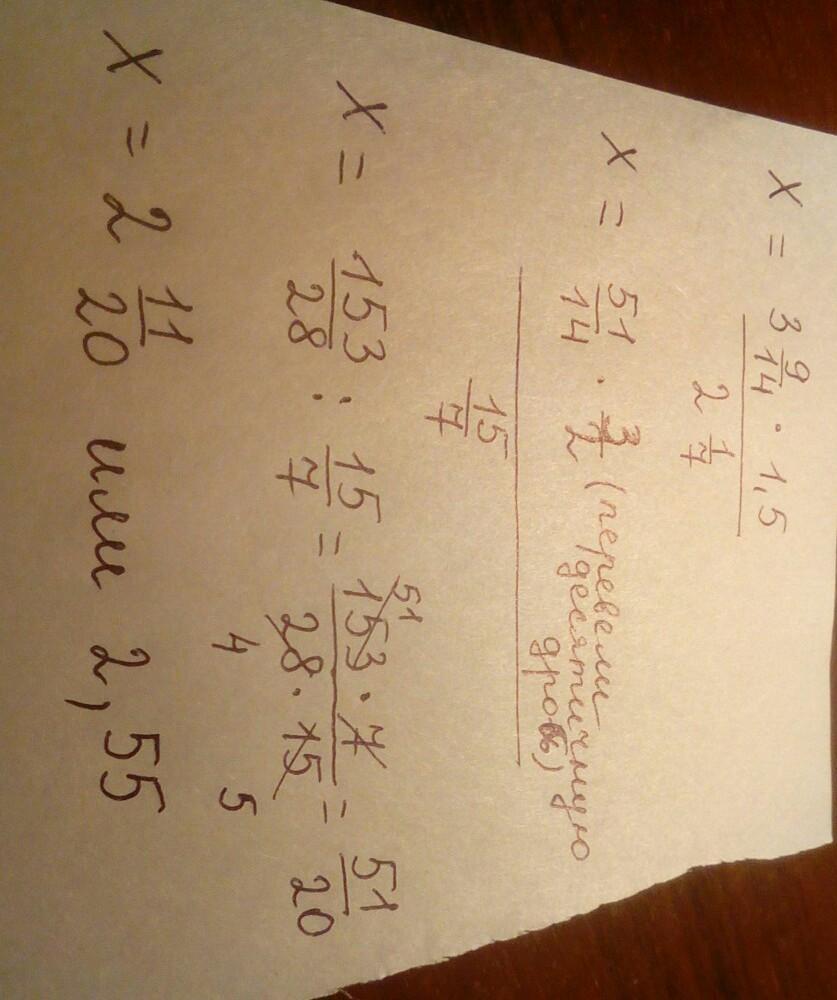 x = 3 9/14 · 1,5
2 1/7
x = 51/14 · 3/2 (перевели
десятичную
дробь)
15/7
x = 153/28 : 15/7 = 153 · 7 / 28 · 15 = 51/20
51
4 5
x = 2 11/20 или 2,55